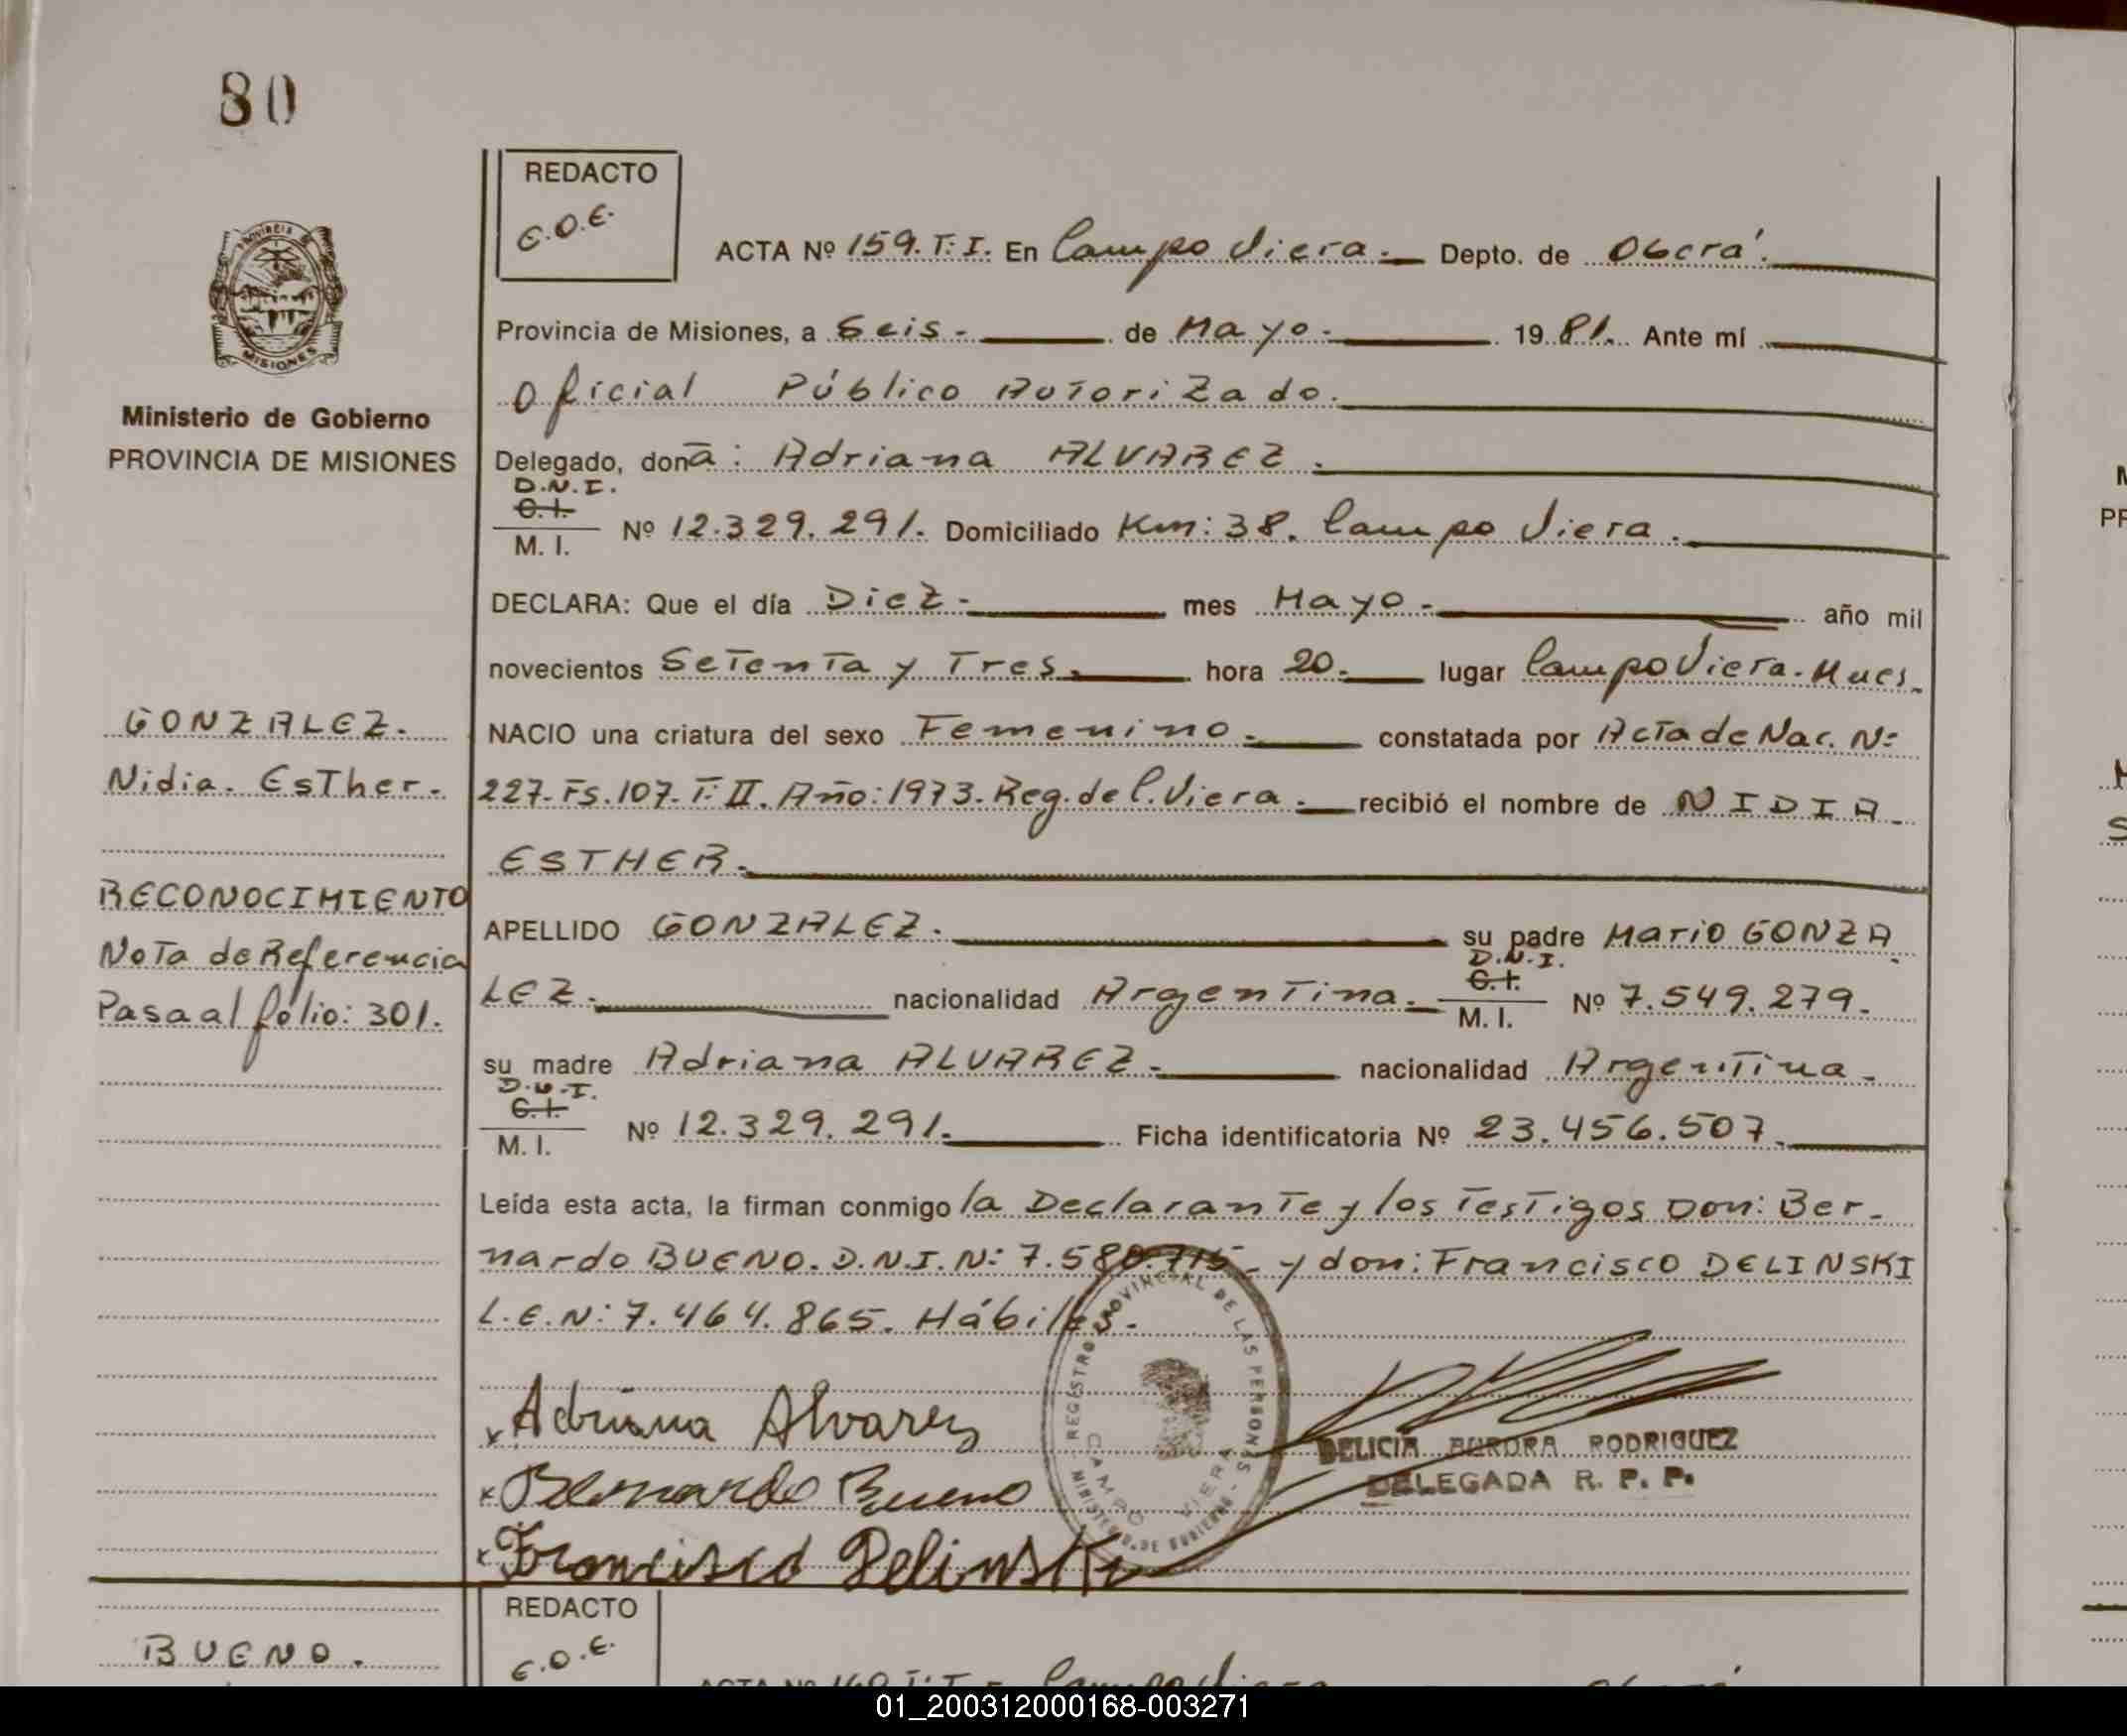 80
REDACTO
E.O.E.
ACTA Nº 159. T: I. En Campo Viera.- Depto. de Oberá.
PROVINCIA
MISIONES
Provincia de Misiones, a Seis.- de Mayo.- 1981. Ante mí
Oficial Público Autorizado.
Ministerio de Gobierno
PROVINCIA DE MISIONES
Delegado, doña: Adriana ALVAREZ.
D.N.I.
C.I.
M. I. Nº 12.329.291. Domiciliado Km: 38. Campo Viera.
DECLARA: Que el día Diez.- mes Mayo.- año mil
novecientos Setenta y Tres. hora 20.- lugar Campo Viera. Mnes.
NACIO una criatura del sexo Femenino.- constatada por Acta de Nac. Nº
227. Fs. 107. T: II. Año: 1973. Reg. de C. Viera.- recibió el nombre de NIDIA
ESTHER.
APELLIDO GONZALEZ.- su padre Mario GONZA
D.N.I.
LEZ.- nacionalidad Argentina.- C.I.
M. I. Nº 7.549.279.
su madre Adriana ALVAREZ.- nacionalidad Argentina.
D.N.I.
C.I.
M. I. Nº 12.329.291. Ficha identificatoria Nº 23.456.507.
Leída esta acta, la firman conmigo la Declarante y los Testigos Don: Ber-
nardo BUENO. D.N.I. N: 7.580.715.- y don: Francisco DELINSKI
L.E.N: 7.464.865. Hábiles.
GONZALEZ.
Nidia. Esther.
RECONOCIMIENTO
Nota de Referencia
Pasa al folio: 301.
REGISTRO PROVINCIAL DE LAS PERSONAS
MINISTERIO DE GOBIERNO
CAMPO VIERA
x Adriana Alvarez
x Bernardo Bueno
x Francisco Delinski
DELICIA AURORA RODRIGUEZ
DELEGADA R. P. P.
REDACTO
E.O.E.
BUENO.
ACTA Nº 160 T: I Campo Viera Oberá
01_200312000168-003271